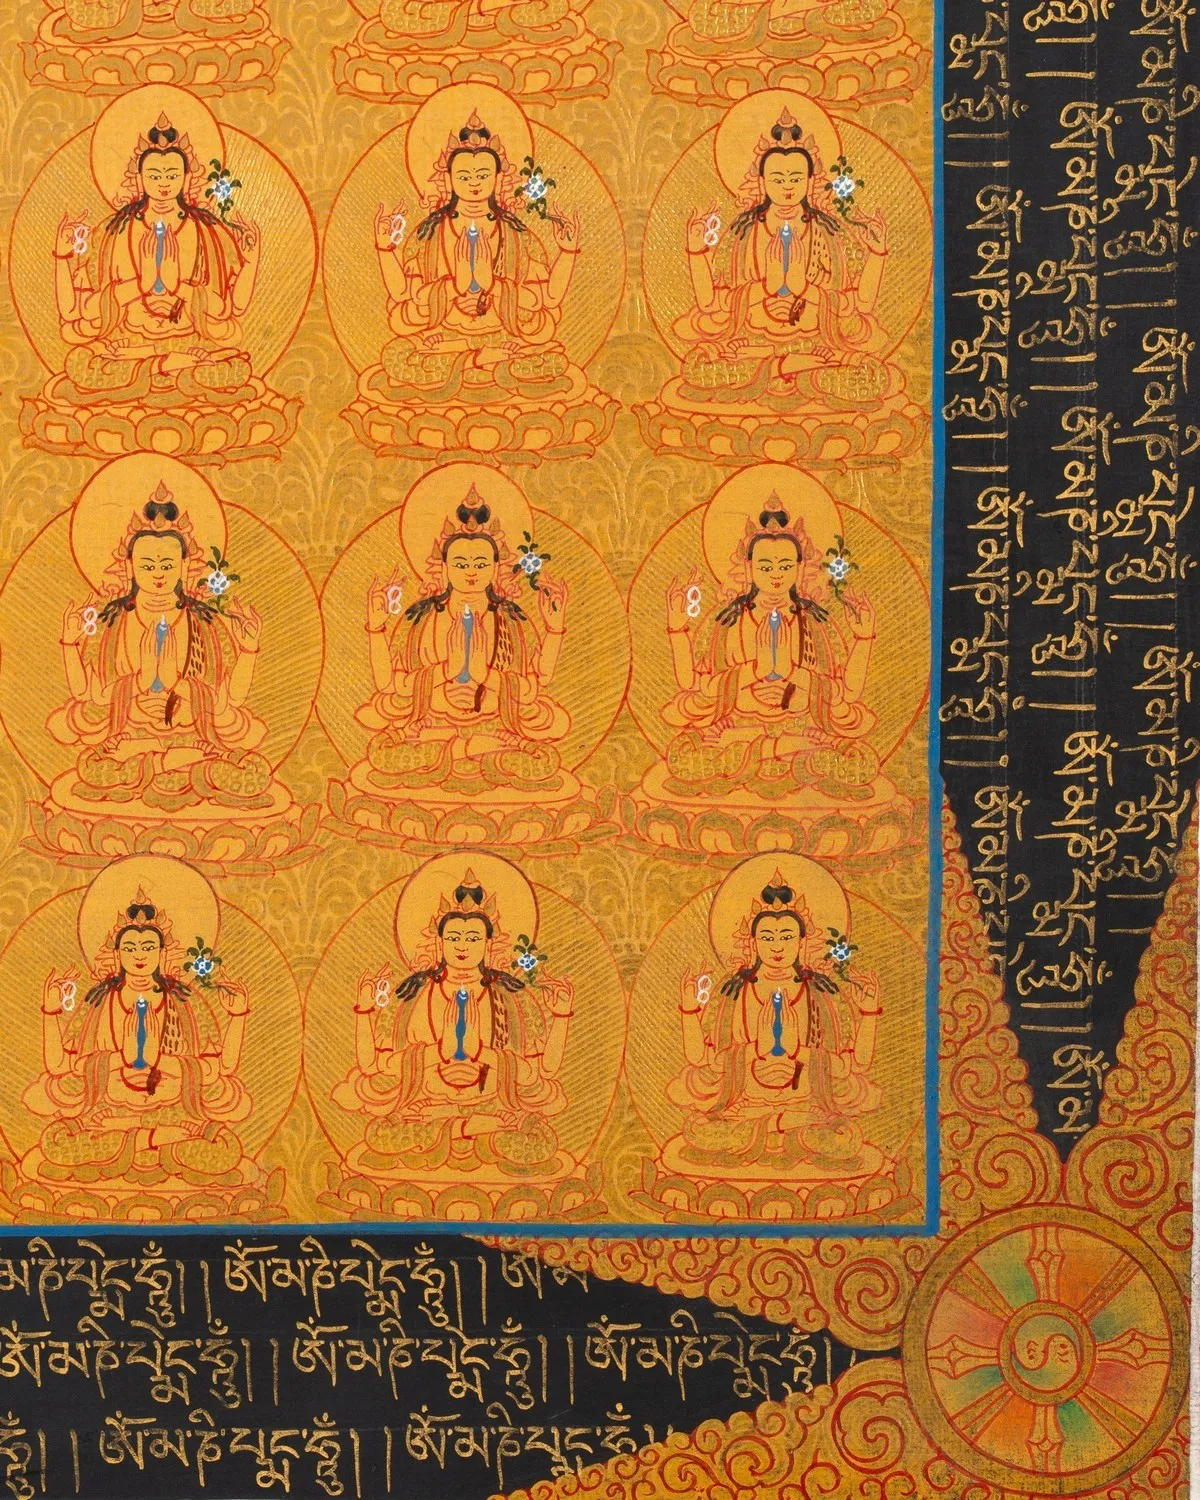 ཨོཾ་མ་ཎི་པདྨེ་ཧཱུྃ། །ཨོཾ་མ་ཎི་པདྨེ་ཧཱུྃ། །ཨོཾ་མ་ཎི་པདྨེ་ཧཱུྃ། །
ཧཱུྃ། །ཨོཾ་མ་ཎི་པདྨེ་ཧཱུྃ། །ཨོཾ་མ་ཎི་པདྨེ་ཧཱུྃ། །ཨོཾ་མ་ཎི་པདྨེ་ཧཱུྃ། །ཨོཾ་མ
པདྨེ་ཧཱུྃ། །ཨོཾ་མ་ཎི་པདྨེ་ཧཱུྃ། །ཨོཾ་མ་ཎི་པདྨེ་ཧཱུྃ། །ཨོཾ་མ་ཎི་པ
མ་ཎི་པདྨེ་ཧཱུྃ། །ཨོཾ་མ་ཎི་པདྨེ་ཧཱུྃ། །ཨོཾ་མ
ཨོཾ་མ་ཎི་པདྨེ་ཧཱུྃ། །ཨོཾ་མ་ཎི་པདྨེ་ཧཱུྃ། །ཨོཾ་མ་ཎི་པདྨེ་ཧཱུྃ།
ཧཱུྃ། །ཨོཾ་མ་ཎི་པདྨེ་ཧཱུྃ། །ཨོཾ་མ་ཎི་པདྨེ་ཧཱུྃ།